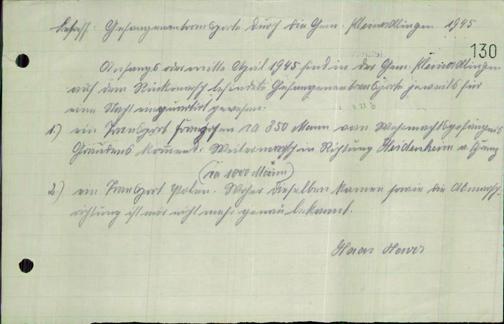 Betreff: Gefangenentransporte durch die Gem. Kleinsüßlingen 1945
130
Anfangs oder mitte April 1945 sind in der Gem.
auf dem Rückmarsch befindliche Gefangenentransporte jeweils für
eine Nacht einquartiert gewesen:
1.) ein Transport Franzosen ca 850 Mann vom Wehrmachtsgefängnis
Graudenz kommend. Weitermarsch in Richtung Heidenheim u.
(ca 1000 Mann)
2.) ein Transport Polen. Woher dieselben kamen sowie die Abmarsch-
richtung ist mir nicht mehr genau bekannt.